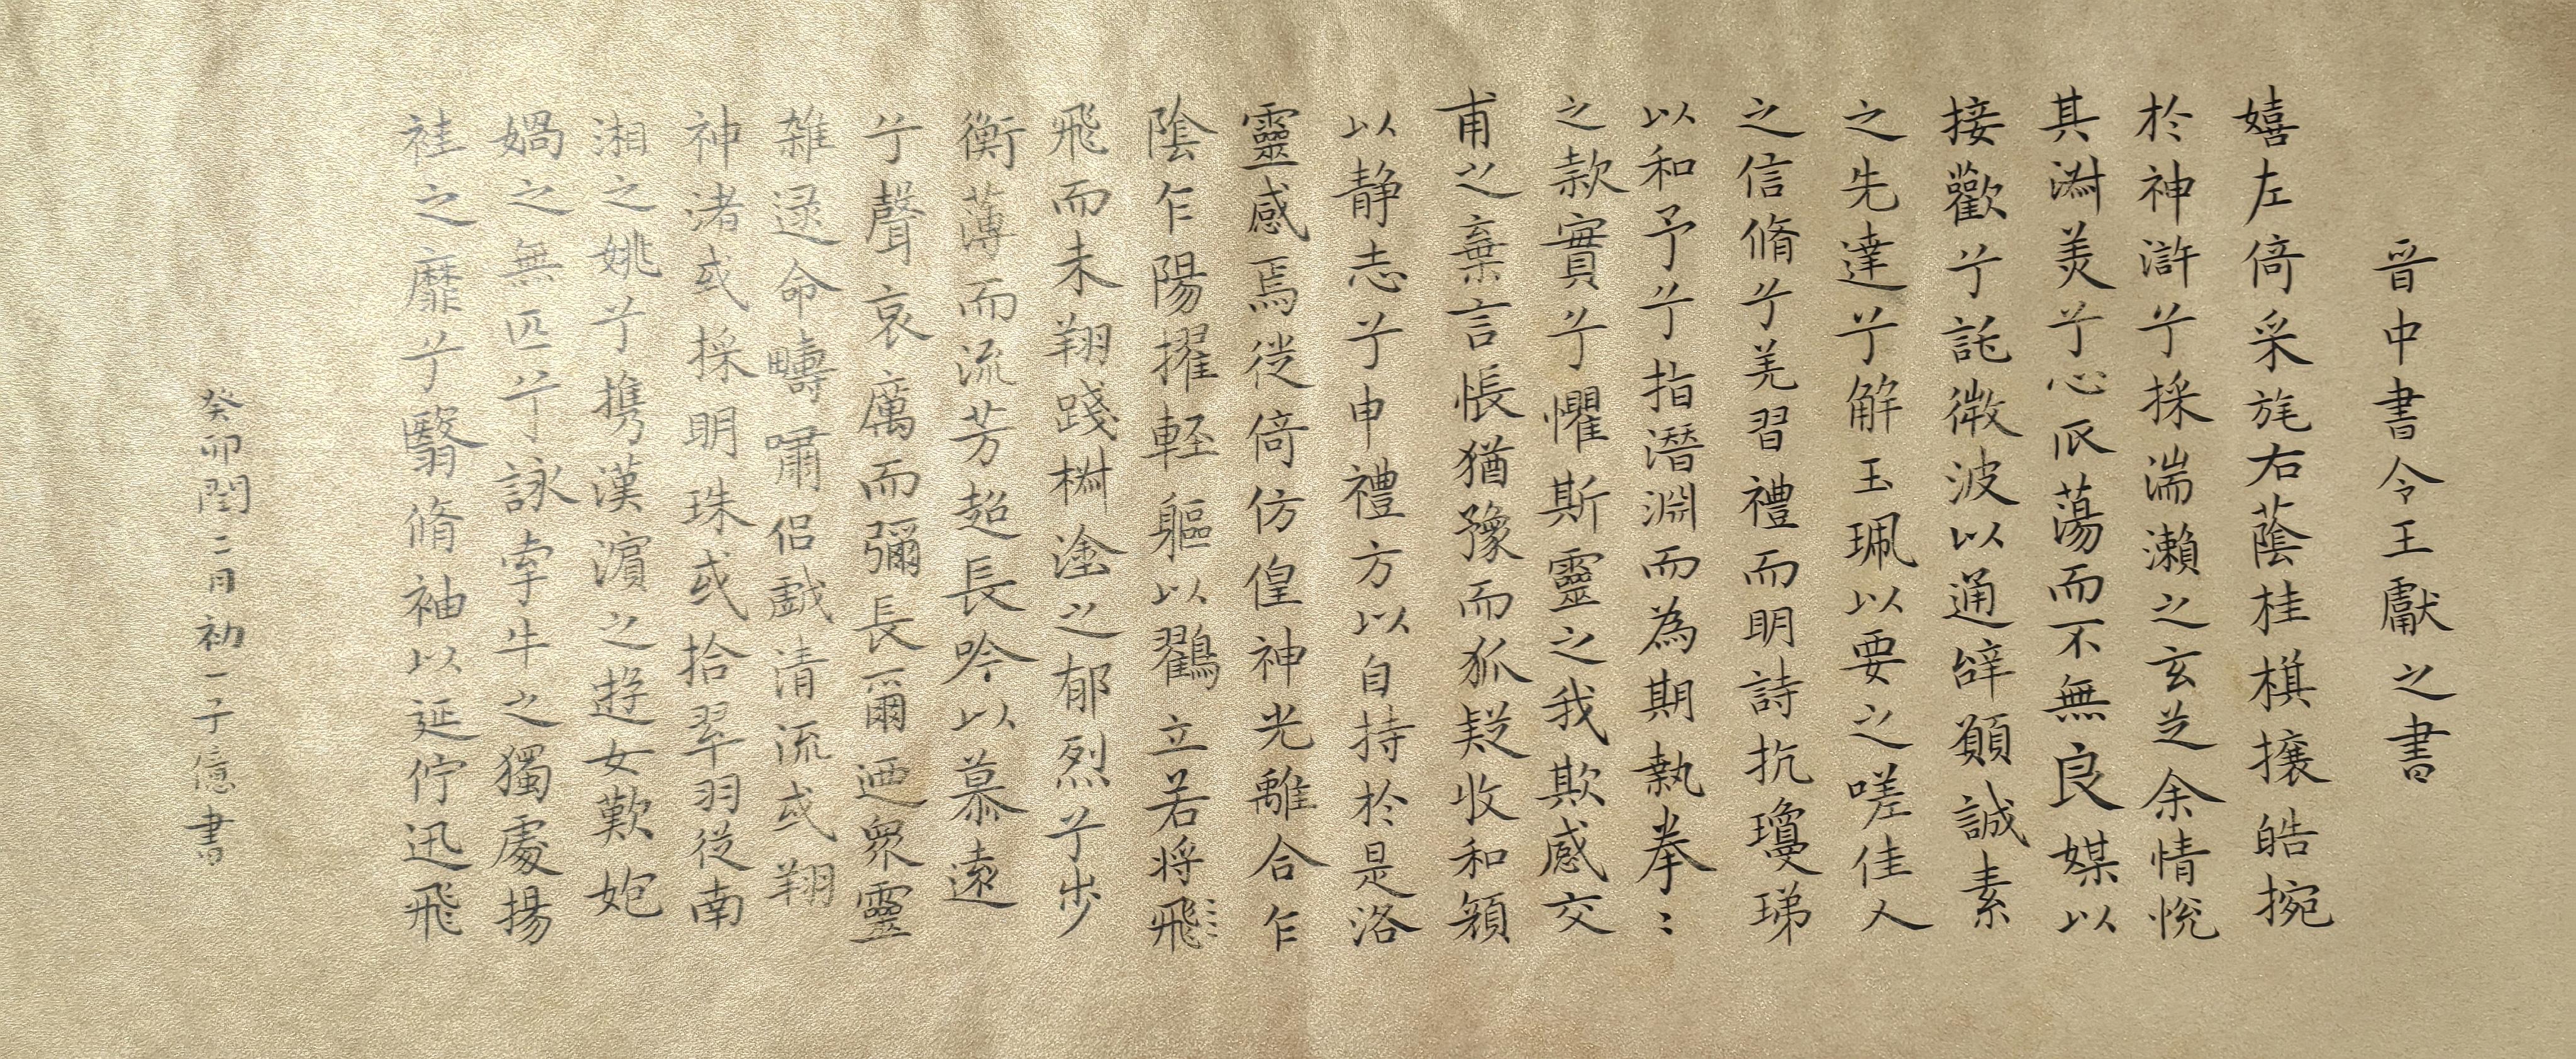 晉中書令王獻之書
嬉左倚采旄右蔭桂棋攘皓捥
於神滸兮採湍瀨之玄芝余情悅
其淑美兮心𠂢蕩而不無良媒以
接歡兮託微波以通辭願誠素
之先達兮解玉珮以要之嗟佳人
之信脩兮羌習禮而明詩抗瓊珶
以和予兮指潛淵而為期執拳〻
之款實兮懼斯靈之我欺感交
甫之棄言悵猶豫而狐疑收和顏
以静志兮申禮方以自持於是洛
靈感焉從倚仿偟神光離合乍
陰乍陽擢輕軀以鸖立若將飛
飛而未翔踐椒塗之郁烈兮步
衡薄而流芳超長吟以慕遠
兮聲哀厲而彌長爾迺衆靈
雜遝命疇嘯侶戲清流或翔
神渚或採明珠或拾翠羽從南
湘之姚兮携漢濱之遊女歎匏
媧之無匹兮詠牽牛之獨處揚
袿之靡兮翳脩袖以延佇迅飛
癸卯閏二月初一子億書